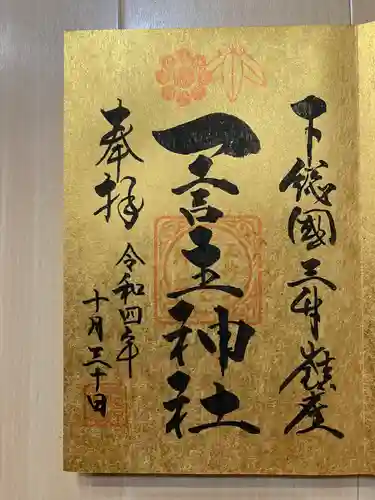 下総國三竹鎮座
一言主神社
奉拝
令和四年
十月三十日